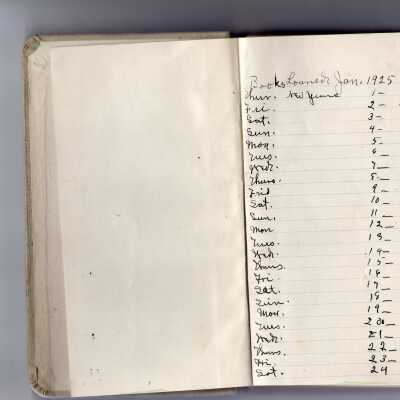 Books Loaned Jan. 1925
Thur. New Years 1-
Fri. 2-
Sat. 3-
Sun. 4-
Mon. 5-
Tues. 6-
Wed. 7-
Thurs. 8-
Frid 9-
Sat. 10-
Sun. 11-
Mon 12-
Tues. 13-
Wed. 14-
Thurs. 15-
Fri 16-
Sat. 17-
Sun. 18-
Mon. 19-
Tues. 20-
Wed. 21-
Thurs. 22-
Fri. 23-
Sat. 24